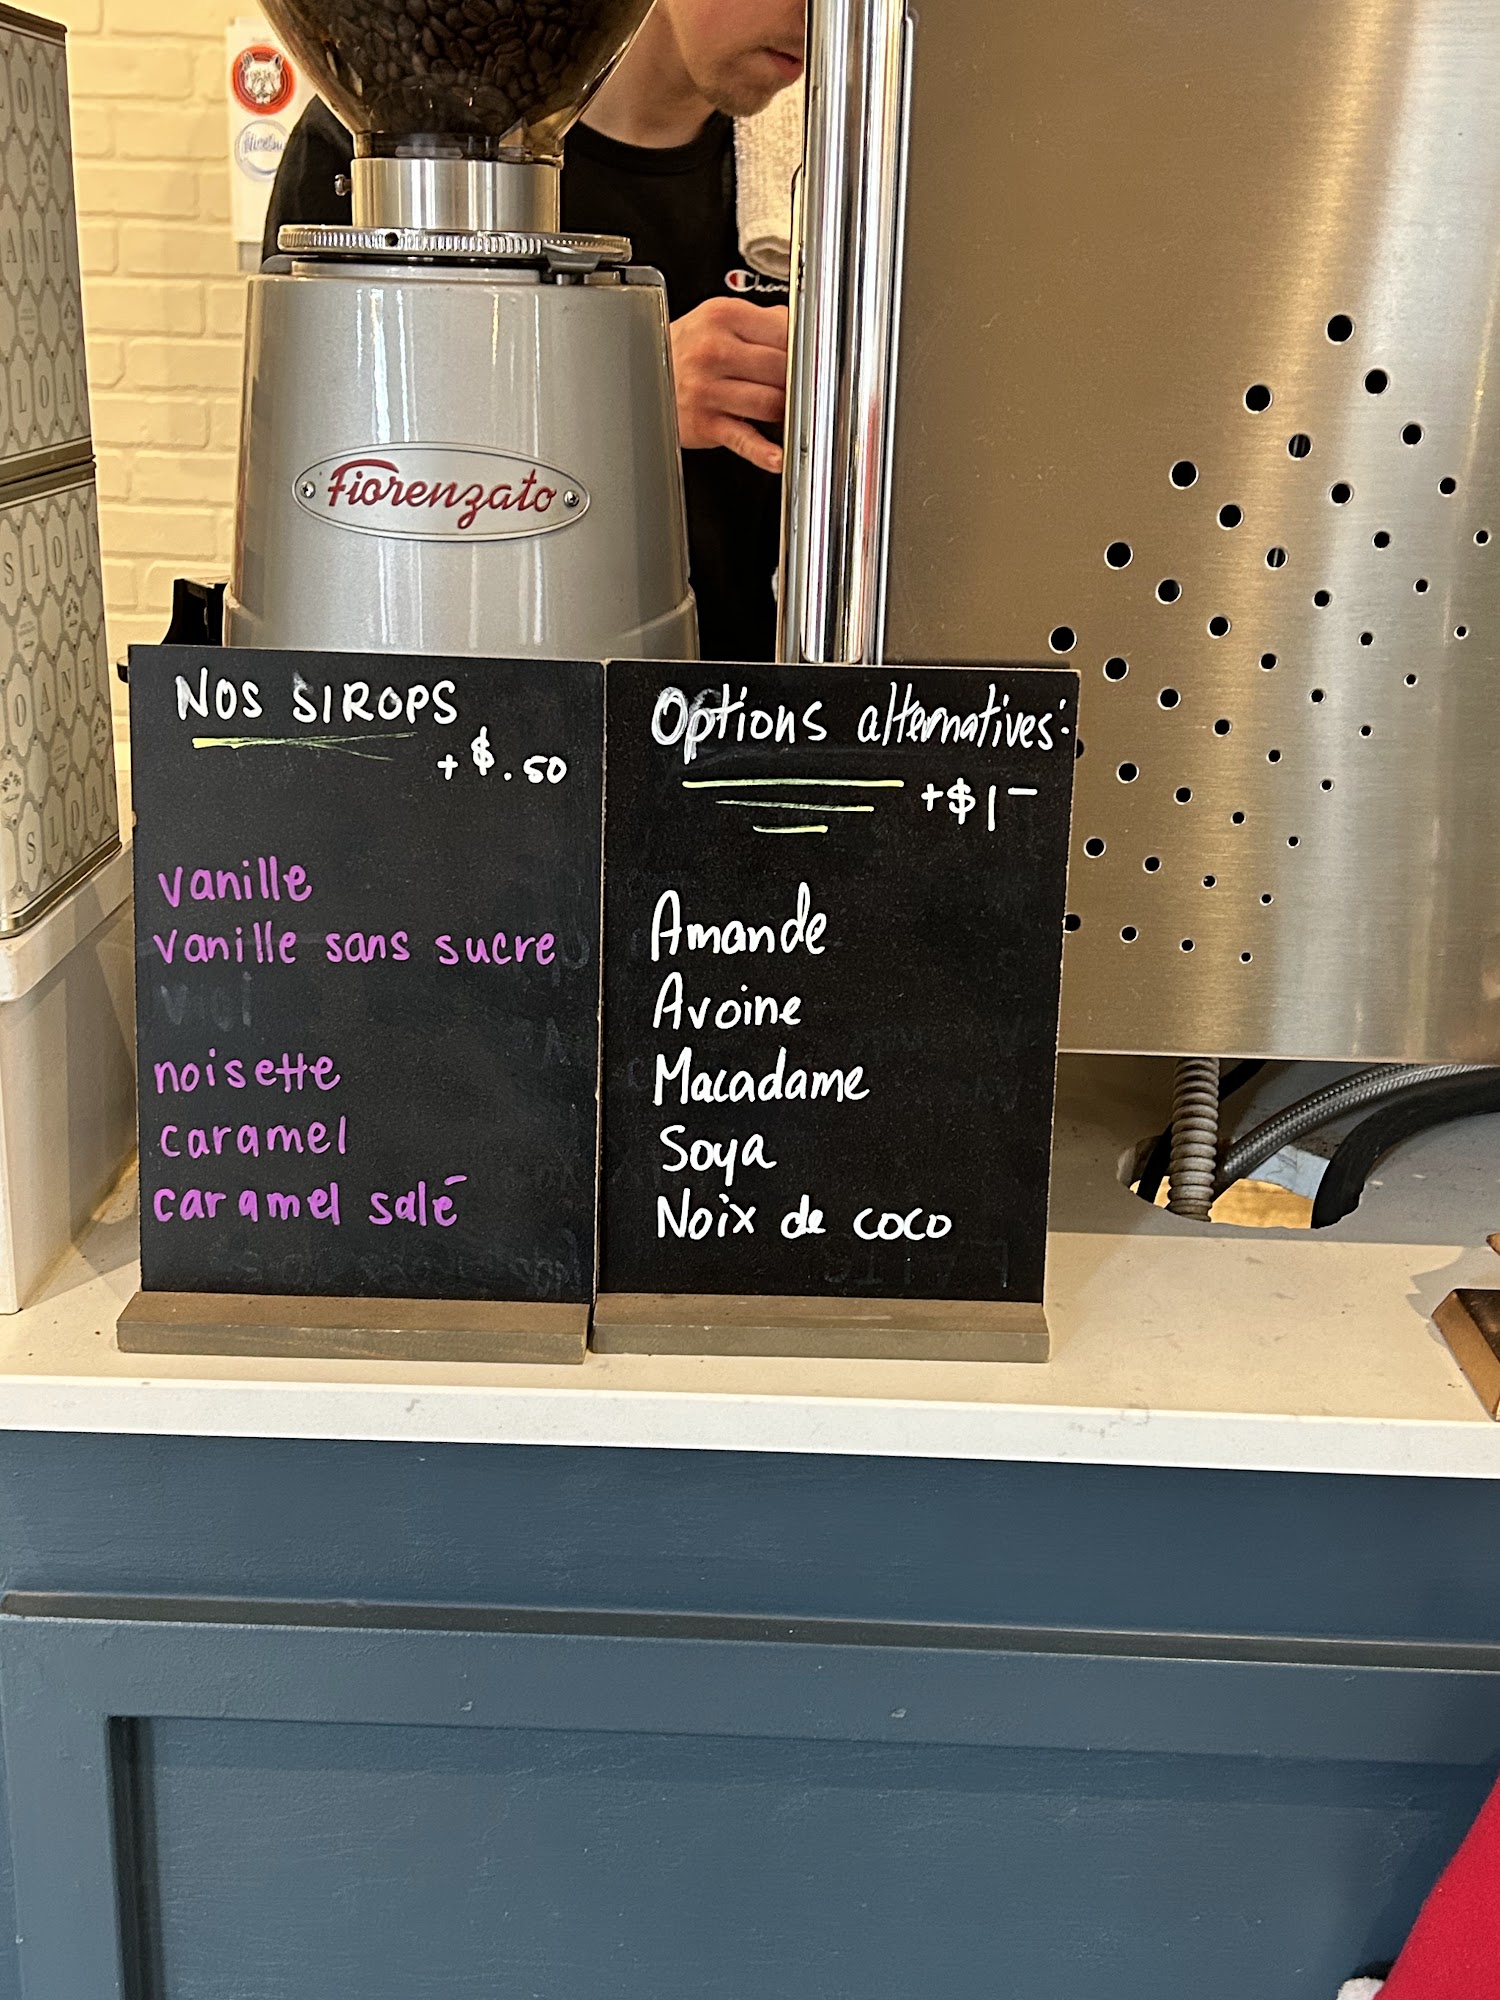 Fiorenzato
NOS SIROPS
+ $.50
vanille
vanille sans sucre
noisette
caramel
caramel salé
Options alternatives:
+$1-
Amande
Avoine
Macadame
Soya
Noix de coco
SLOANE